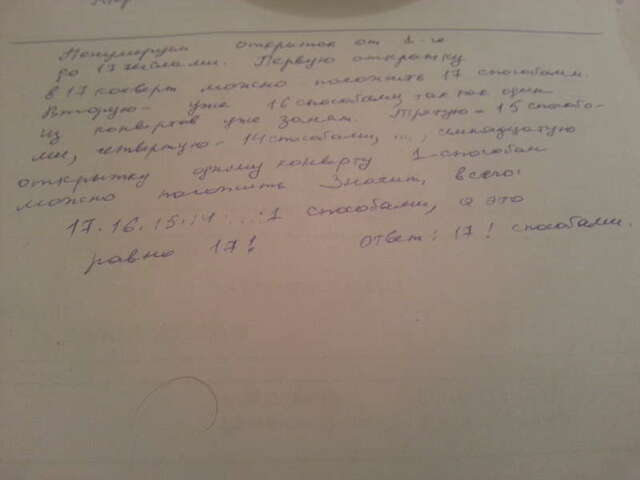 Понумеруем открыток от 1-го
до 17 числами. Первую открытку
в 17 конверт можно положить 17 способами.
Вторую - уже 16 способами, так как один
из конвертов уже занят. Третую - 15 способа-
ми, четвертую - 14 способами, ..., семнадцатую
открытку одному конверту 1-способом
можно положить. Значит, всего:
17.16.15.14. ... .1 способами, а это
равно 17! Ответ: 17! способами.